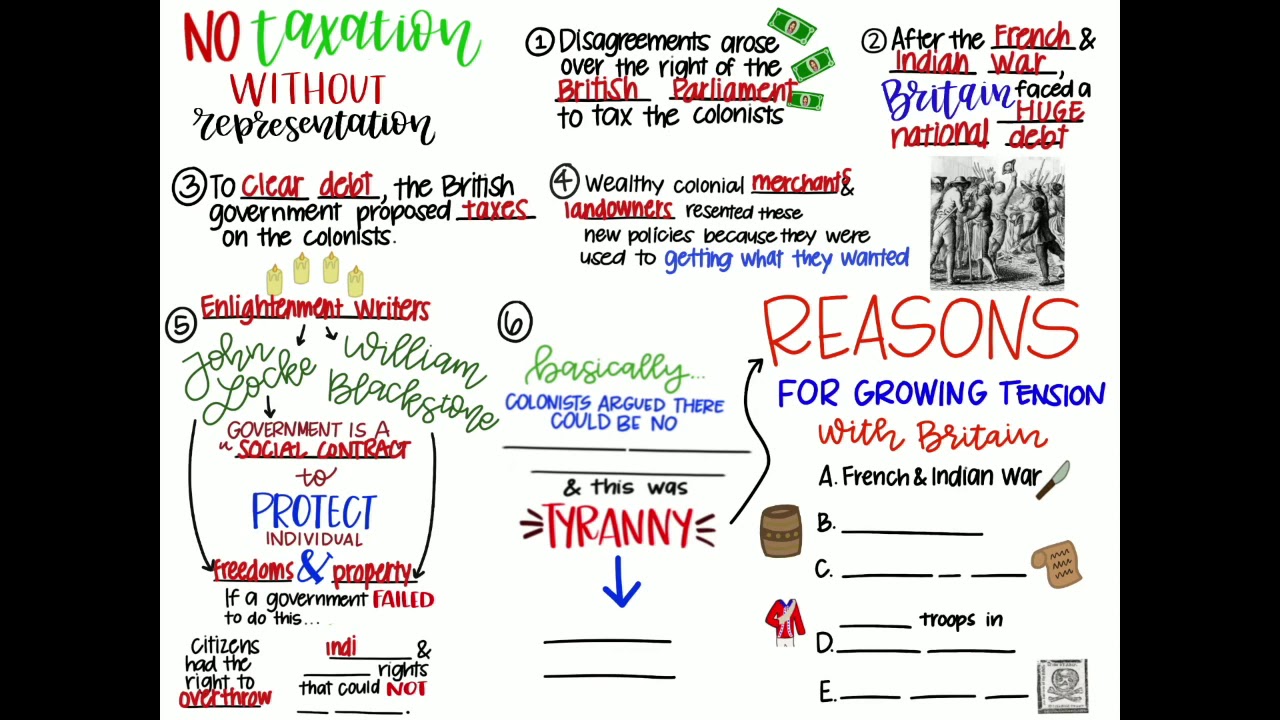 NO taxation
WITHOUT
representation
① Disagreements arose
over the right of the
British Parliament
to tax the colonists
② After the French &
Indian War,
Britain faced a
HUGE
national debt
③ To clear debt, the British
government proposed taxes
on the colonists.
④ Wealthy colonial merchants &
landowners resented these
new policies because they were
used to getting what they wanted
⑤ Enlightenment writers
John Locke
William Blackstone
GOVERNMENT IS A
"SOCIAL CONTRACT
to
PROTECT
INDIVIDUAL
freedoms & property
If a government FAILED
to do this...
citizens
had the
right to
overthrow
indi &
rights
that could NOT
.
⑥
basically...
COLONISTS ARGUED THERE
COULD BE NO
& this was
TYRANNY
REASONS
FOR GROWING TENSION
with Britain
A. French & Indian War
B.
C.
troops in
D.
E.